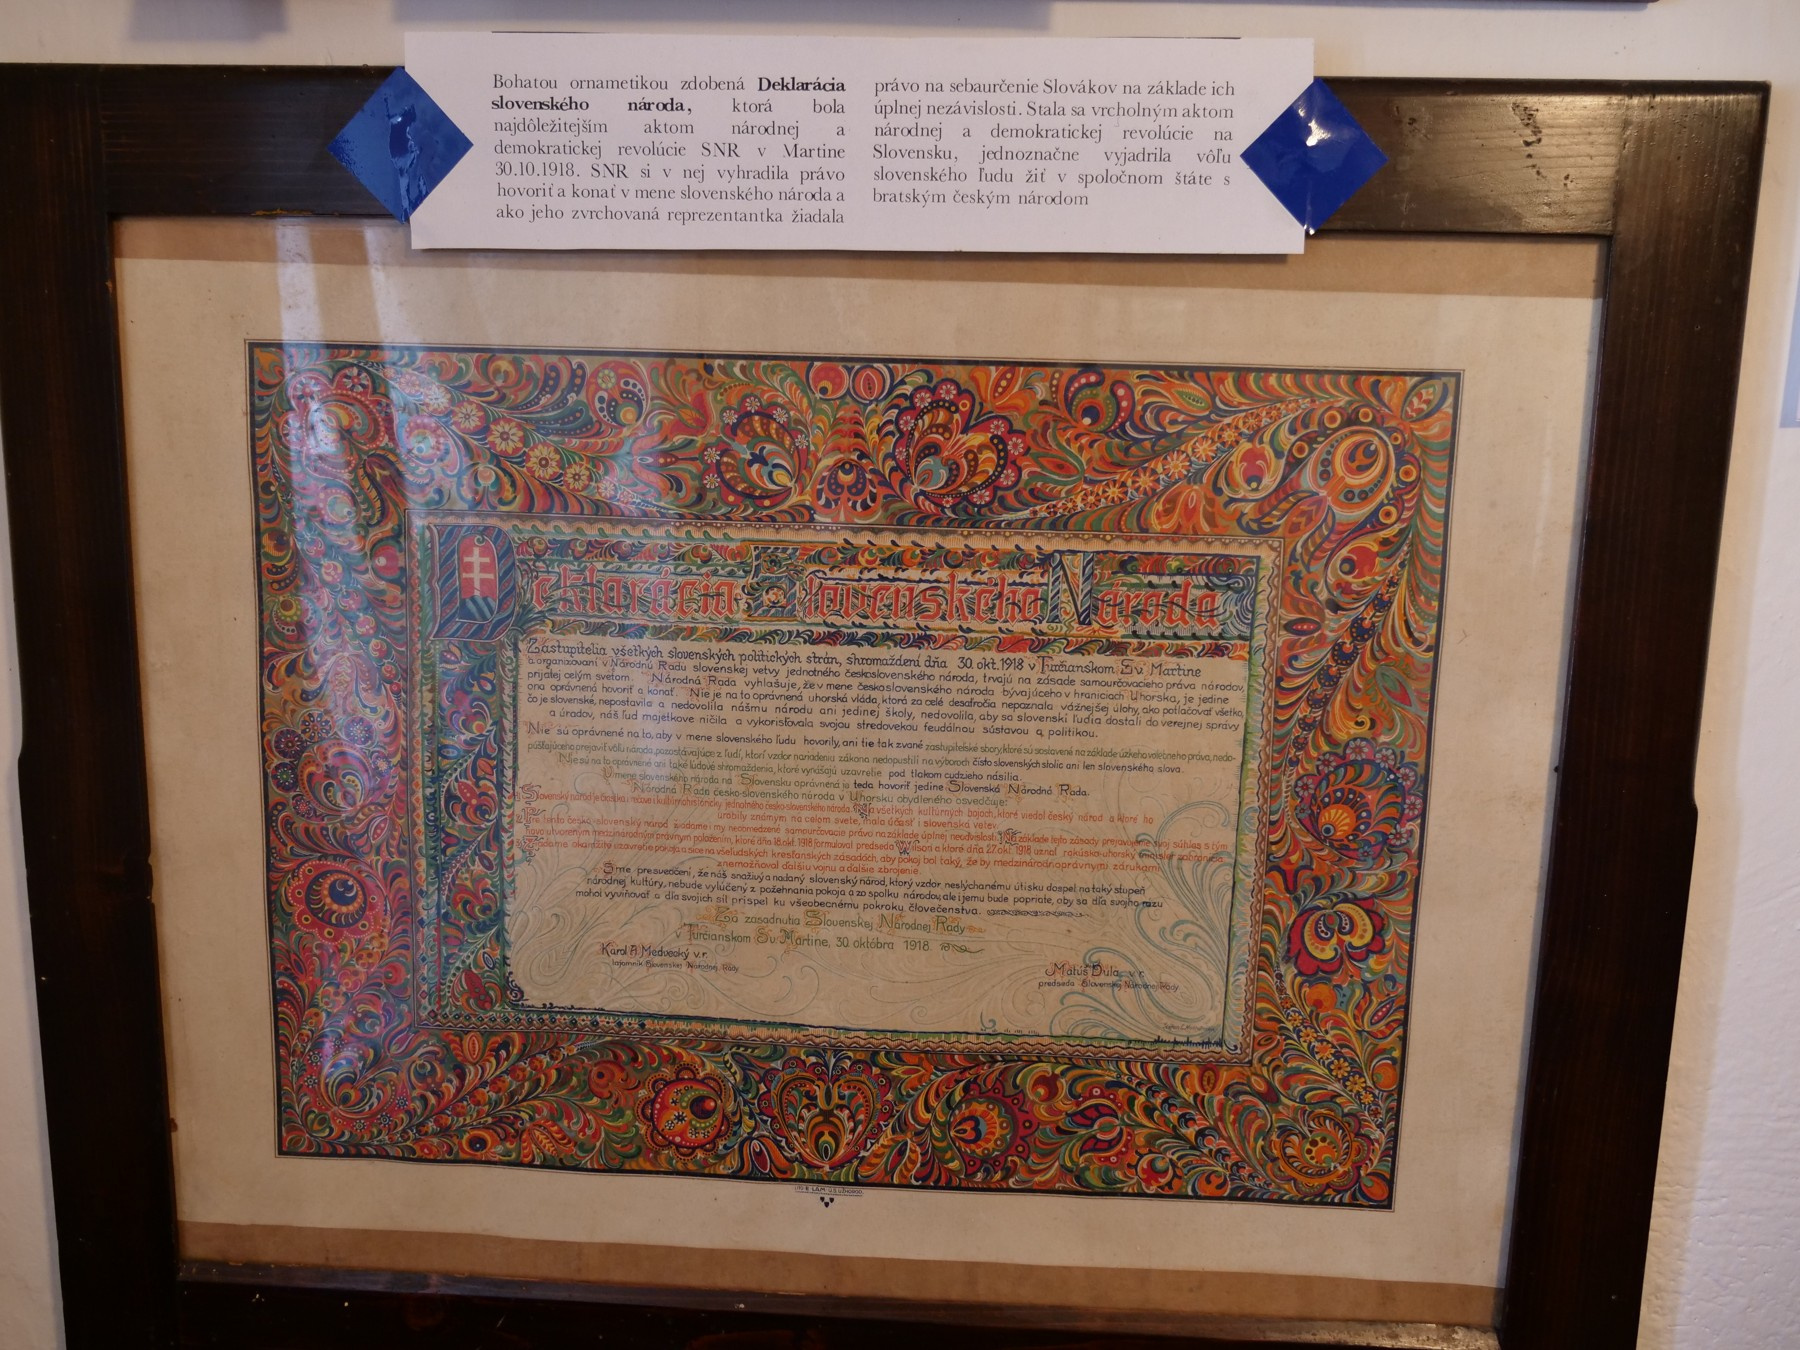 Bohatou ornametikou zdobená Deklarácia
slovenského národa, ktorá bola
najdôležitejším aktom národnej a
demokratickej revolúcie SNR v Martine
30.10.1918. SNR si v nej vyhradila právo
hovoriť a konať v mene slovenského národa a
ako jeho zvrchovaná reprezentantka žiadala
právo na sebaurčenie Slovákov na základe ich
úplnej nezávislosti. Stala sa vrcholným aktom
národnej a demokratickej revolúcie na
Slovensku, jednoznačne vyjadrila vôľu
slovenského ľudu žiť v spoločnom štáte s
bratským českým národom
Deklarácia Slovenského Národa
Zástupitelia všetkých slovenských politických strán, shromaždení dňa 30. okt. 1918 v Turčianskom Sv. Martine
a organizovaní v Národnú Radu slovenskej vetvy jednotného československého národa, trvajú na zásade samourčovacieho práva národov,
prijatej celým svetom. Národná Rada vyhlašuje, že v mene československého národa bývajúceho v hraniciach Uhorska, je jedine
ona oprávnená hovoriť a konať. Nie je na to oprávnená uhorská vláda, ktorá za celé desaťročia nepoznala vážnejšej úlohy, ako potlačovať všetko,
čo je slovenské, nepostavila a nedovolila nášmu národu ani jedinej školy, nedovolila, aby sa slovenskí ľudia dostali do verejnej správy
a úradov, náš ľud majetkove ničila a vykorisťovala svojou stredovekou feudálnou sústavou a politikou.
Nie sú oprávnené na to, aby v mene slovenského ľudu hovorily, ani tie tak zvané zastupiteľské sbory, ktoré sú sostavené na základe úzkeho volebného práva, nedo-
púšťajúceho prejaviť vôľu národa pozostávajúce z ľudí, ktorí vzdor nariadeniu zákona nedopustili na výboroch čisto slovenských stolíc ani len slovenského slova.
Nie sú na to oprávnené ani také ľudové shromaždenia, ktoré vynášajú uzavretie pod tlakom cudzieho násilia.
V mene slovenského národa na Slovensku oprávnená je teda hovoriť jedine Slovenská Národná Rada.
Národná Rada česko-slovenského národa v Uhorsku obydleného osvedčuje:
Slovenský národ je čiastka i rečove i kultúrno-historicky jednotného česko-slovenského národa. Na všetkých kultúrnych bojoch, ktoré viedol český národ a ktoré ho
urobily známym na celom svete, mala účasť i slovenská vetev.
Pre tento česko-slovenský národ žiadame i my neobmedzené samourčovacie právo na základe úplnej neodvislosti. Na základe tejto zásady prejavujeme svoj súhlas s tým
novo utvoreným medzinárodným právnym položením, ktoré dňa 18. okt. 1918 formuloval predseda Wilson a ktoré dňa 27. okt. 1918 uznal rakúsko-uhorský minister
Žiadame okamžité uzavretie pokoja a síce na všeľudských kresťanských zásadách, aby pokoj bol taký, že by medzinárodnoprávnymi zárukami
znemožňoval ďalšiu vojnu a ďalšie zbrojenie.
Sme presvedčení, že náš snaživý a nadaný slovenský národ, ktorý vzdor neslýchanému útisku dospel na taký stupeň
národnej kultúry, nebude vylúčený z požehnania pokoja a zo spolku národov, ale i jemu bude popriate, aby sa dľa svojho rázu
mohol vyvíňovať a dľa svojich síl prispel ku všeobecnému pokroku človečenstva.
Zo zasadnutia Slovenskej Národnej Rady
v Turčianskom Sv. Martine, 30. októbra 1918.
Karol A. Medvecký v.r.
tajomník Slovenskej Národnej Rady
Matúš Dula v.r.
predseda Slovenskej Národnej Rady